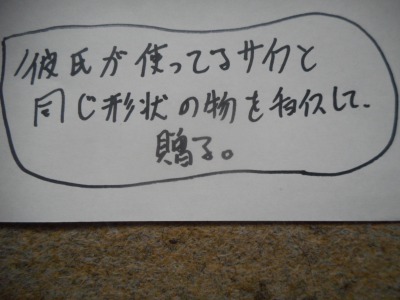 彼氏が使ってるサイフと
同じ形状の物をチョイスして、
贈る。